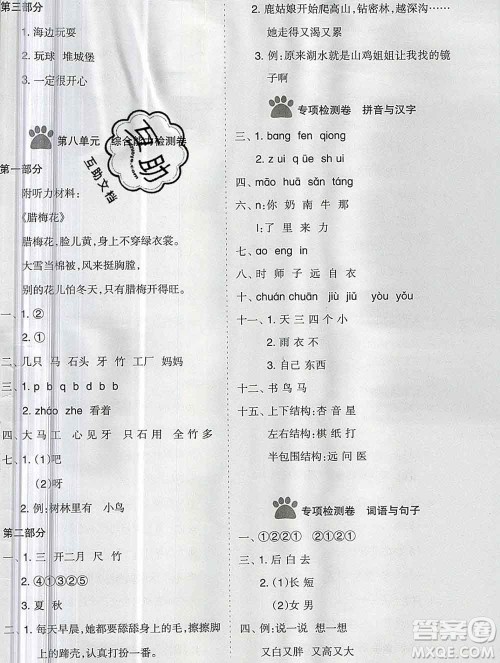 第三部分
1. 海边玩耍
2. 玩球 堆城堡
3. 一定很开心
第八单元 综合能力检测卷
第一部分
附听力材料:
《腊梅花》
腊梅花,脸儿黄,身上不穿绿衣裳。
大雪当棉被,风来挺胸膛,
别的花儿怕冬天,只有腊梅开得旺。
一、1. ①②
二、几只 马 石头 牙 竹 工厂 妈妈
三、1. p b q b d b q
2. zháo zhe 看着
四、大 马 工 心 见 牙 只 石 用 全 竹 多
七、1. (1)吧
(2)呀
2. 例:树林里有 小鸟
第二部分
一、1. 三 开 二 月 尺 竹
2. ④①③②⑤
3. 夏 秋
二、1. 每天早晨,她都要舔舔身上的毛,擦擦脚
上的蹄壳,为大家表演跳舞。
2. 鹿姑娘开始爬高山,钻密林,越深沟……
她走得又渴又累
3. 例:原来湖水就是山鸡姐姐让我找的镜
子啊!
专项检测卷 拼音与汉字
三、1. bang fen qiong
2. gang san bing
四、māo huā sǎn táng
六、n: 你 奶 南 牛 那
l: 了 里 来 力
七、ao eng in
八、时 师 子 远 自 衣
十、chuán chuān jiù jiǔ yòu yǒu
十一、1. 天 三 四 个 小
2. 雨 衣 不
3. 自己 东西
十二、书 鸟 马
十五、上下结构:杏 音 星
左右结构:棋 纸 打
半包围结构:远 问 医
专项检测卷 词语与句子
一、①②②① ②①②①
三、1. 后 白 去
2. (1)长 短
(2)女 男
四、例:说一说 想一想
又白又胖 又高又大
互助
互助文档
作业帮答案
MXQE.COM